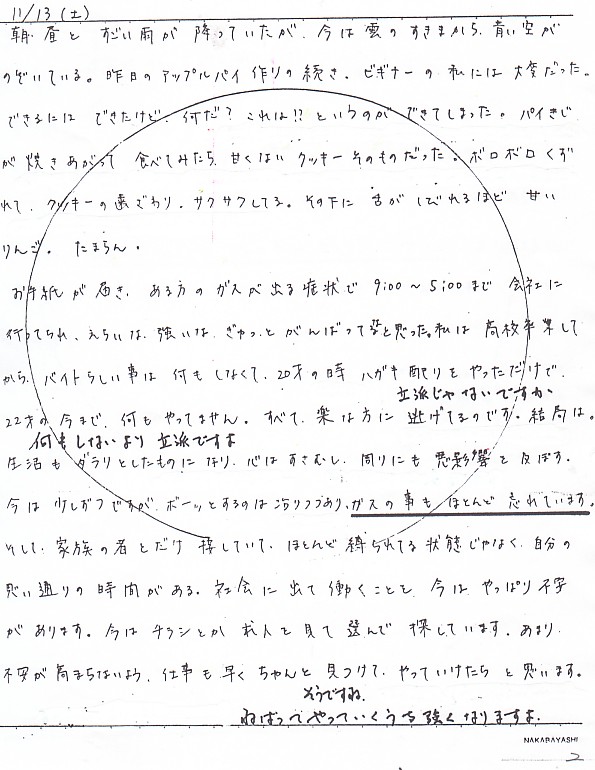 11/13(土)
朝・昼と すごい雨が 降っていたが、今は雲のすきまから、青い空が
のぞいている。昨日の アップルパイ 作りの続き、ビギナーの 私には 大変だった。
できるには できたけど、何だ?これは!!というのが できてしまった。パイきじ
が 焼きあがって 食べてみたら、甘くない クッキー そのものだった。ボロボロ くず
れて、クッキーの 感じであり、サクサクしてる。その下に 舌が しびれるほど 甘い
りんご。たまらん。
お手紙が 届き、ある方の ガスが 出る 症状で 9:00~5:00まで 会社に
行ってられ、えらいな、強いな、ぎゅっと がんばってると思った。私は 高校卒業して
から、バイトらしい事は 何も しなくて、20才の時 ハガキ配りを やっただけで、
立派じゃないですか
22才の 今まで、何も やってません。すべて、楽な方に 逃げてるのです。結局は。
何もしないより 立派ですよ
生活も ダラリとしたものに なり、心は すさむし、周りにも 悪影響を 及ぼす。
今は 少しずつですが、ボーッとするのは 減りつつあり、ガスの事も ほとんど 忘れています。
そして、家族の者とだけ 接していて、ほとんど 縛られてる 状態じゃなく、自分の
思い通りの 時間がある。社会に 出て 働くことを、今は やっぱり 不安
があります。今は チラシとか 求人を 見て 選んで 探しています。あまり
不安が 高まらないよう、仕事も 早く ちゃんと 見つけて、やっていけたら と 思います。
そうですね、
ねばってやっていくうち強くなりますよ。
NAKABAYASHI
2